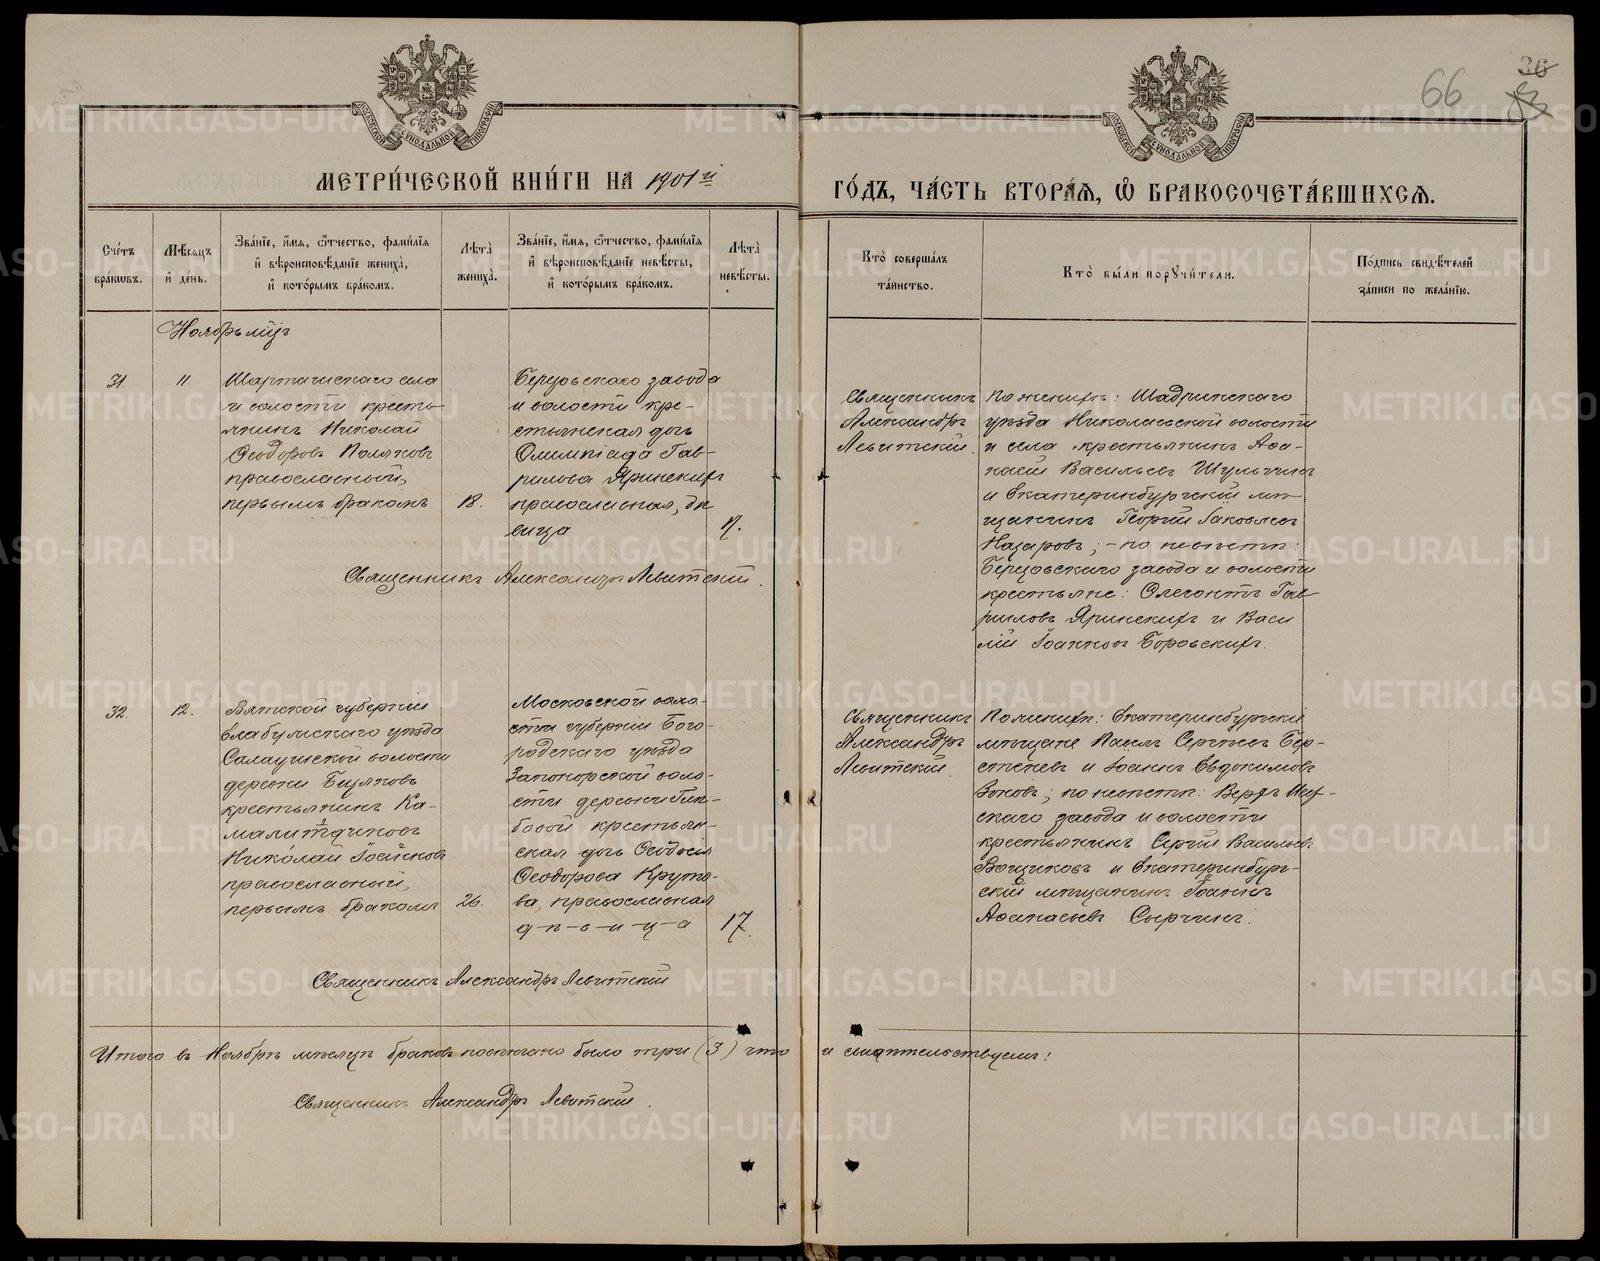 66
36
МЕТРИ́ЧЕСКОЙ КНИ́ГИ НА 1901й
ГО́ДЪ, ЧА́СТЬ ВТОРА́Ѧ, Ѽ БРАКОСОЧЕТА́ВШИХСѦ.
Сче́тъ бра́кѡвъ.
Мѣ́сѧцъ и҆ де́нь.
Зва́нїе, и҆́мѧ, ѻ҆́тчество, фами́лїѧ и҆ вѣроисповѣ́данїе жениха̀, и҆ кото́рымъ бра́комъ.
Лѣ́та̀ жениха̀.
Зва́нїе, и҆́мѧ, ѻ҆́тчество, фами́лїѧ и҆ вѣроисповѣ́данїе невѣ́сты, и҆ кото́рымъ бра́комъ.
Лѣ́та̀ невѣ́сты.
Кто̀ соверша́лъ та́инство.
Кто̀ бы́ли порꙋчи́тели.
По́дпись свидѣ́телей за́писи по жела́нїю.
Ноябрь мцъ
31.
11.
Шарташскаго села
и волости кресть-
янинъ Николай
Ѳеодоровъ Поляковъ
православный,
первымъ бракомъ
18.
Березовскаго завода
и волости кре-
стьянская дочь
Олимпіада Гав-
рилова Яринскихъ
православная, дѣ
вица
17.
Священникъ
Александръ
Левитскій.
По женихѣ: Шадринскаго
уѣзда Николаевской волости
и села крестьянинъ Аѳа-
насій Васильевъ Шульгинъ
и Екатеринбургскій мѣ-
щанинъ Георгій Іаковлевъ
Назаровъ; – по невѣстѣ:
Березовскаго завода и волости
крестьяне: Олегонтъ Гав
риловъ Яринскихъ и Васи
лій Іоанновъ Боровскихъ.
Священникъ Александръ Левитскій.
32.
12.
Вятской губерніи
Елабужскаго уѣзда
Салаушской волости
деревни
крестьянинъ Ка-
Николай
православный,
первымъ бракомъ
26.
Московской воло-
сти губерніи Бого-
родскаго уѣзда
Запонорской воло-
сти деревни Глѣ-
бовой крестьян-
ская дочь Ѳеодосія
Ѳеодорова Круто-
ва, православная
д-ѣ-в-и-ц-а
17.
Священникъ
Александръ
Левитскій.
По женихѣ: Екатеринбургскіе
мѣщане Павелъ Сергѣевъ Бер-
стеневъ и Іоаннъ Евдокимовъ
Зоковъ; по невѣстѣ: Верхъ Исет-
скаго завода и волости
крестьянинъ Сергій Васильев.
Вощиковъ и Екатеринбург-
скій мѣщанинъ Іоаннъ
Аѳанасьевъ Сырчинъ.
Священникъ Александръ Левитскій
Итого въ Ноябрѣ мѣсяцѣ браковъ повѣнчано было три (3) что и свидѣтельствуемъ:
Священникъ Александръ Левитскій.
METRIKI.GASO-URAL.RU